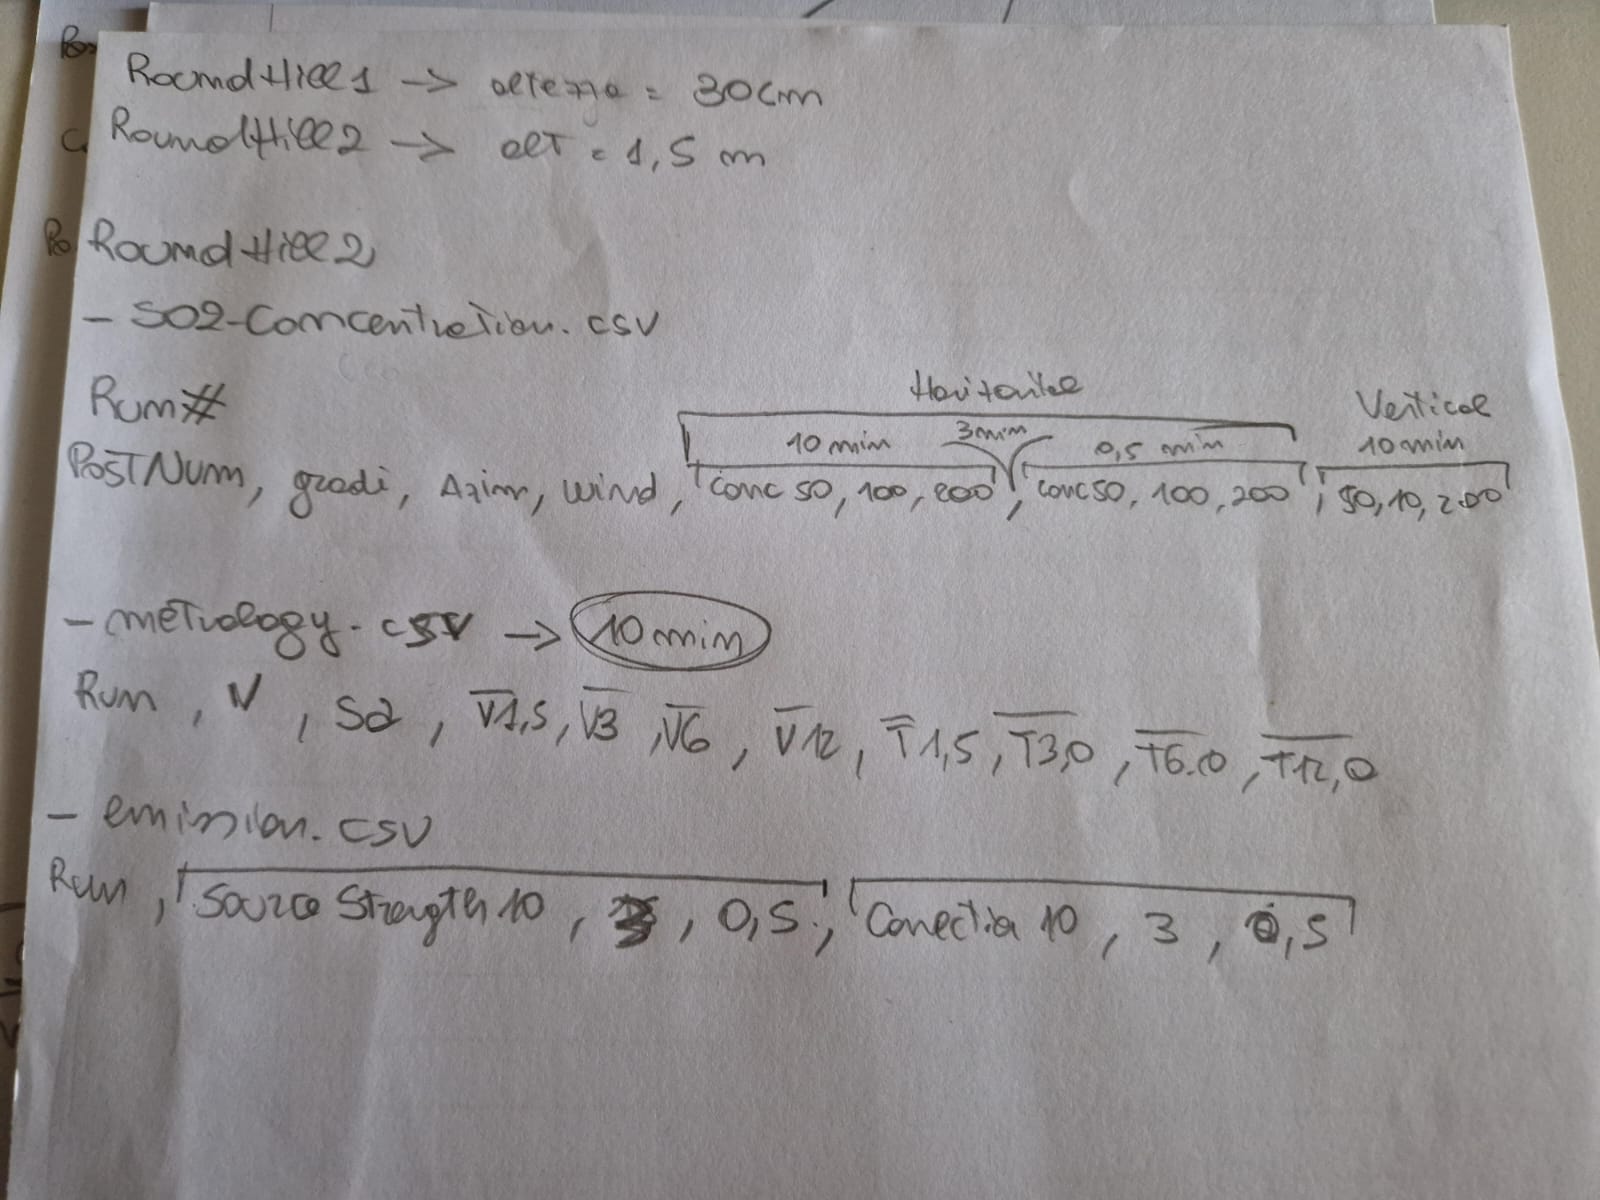 RoundHill1 -> altezza = 30cm
RoundHill2 -> alt = 1,5 m
RoundHill2
- SO2-Concentration.csv
Run#
Horizontal
Vertical
10 min 3min 0,5 min 10 min
PostNum, gradi, Azim, wind, conc 50, 100, 200, conc 50, 100, 200, 50, 10, 200
- metrology.csv -> 10 min
Run, N, Sd, V1,5, V3, V6, V12, T1,5, T3,0, T6.0, T12,0
- emission.csv
Run, Source Strength 10, 3, 0,5, Conectia 10, 3, 0,5